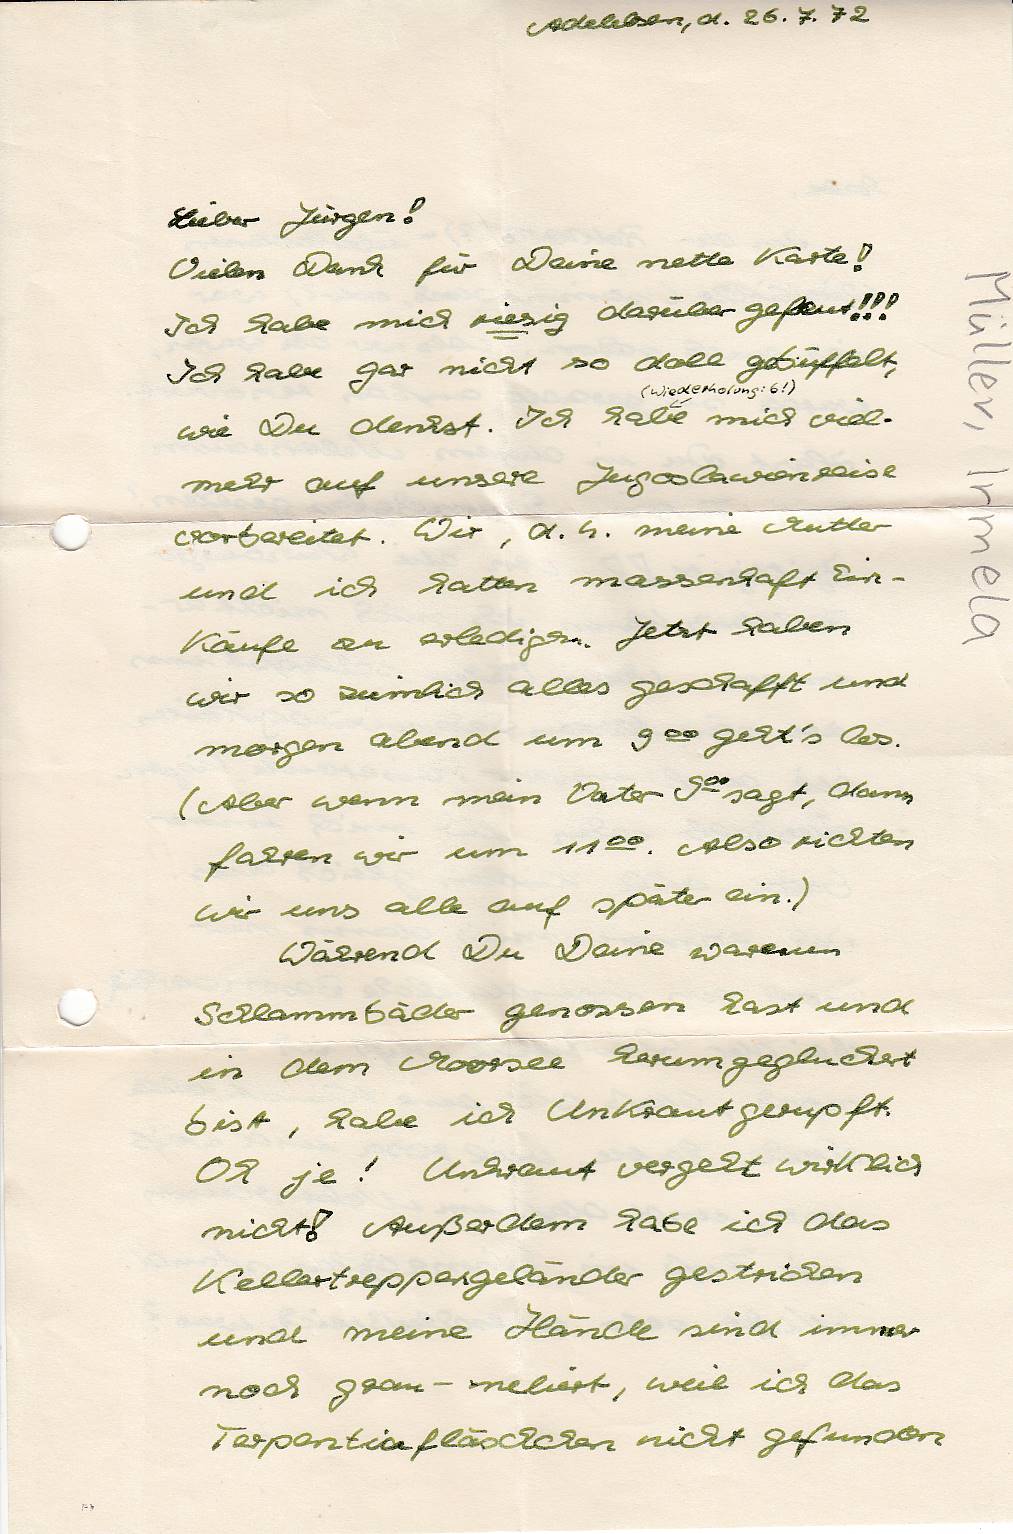 Adelebsen, d. 26.7.72
Lieber Jürgen!
Vielen Dank für Deine nette Karte!
Ich habe mich riesig darüber gefreut!!!
Ich habe gar nicht so doll gebüffelt,
(Wiederholung: 6!)
wie Du denkst. Ich habe mich viel-
mehr auf unsere Jugoslawienreise
vorbereitet. Wir, d.h. meine Mutter
und ich hatten massenhaft Ein-
käufe zu erledigen. Jetzt haben
wir so ziemlich alles geschafft und
morgen abend um 9 00 geht's los.
(Aber wenn mein Vater 9 00 sagt, dann
fahren wir um 11 00. Also richten
wir uns alle auf später ein.)
Während Du Deine warmen
Schlammbäder genossen hast und
in dem Moorsee herumgegluckert
bist, habe ich Unkraut gerupft.
Oh je! Unkraut vergeht wirklich
nicht! Außerdem habe ich das
Kellertreppengeländer gestrichen
und meine Hände sind immer
noch grau-meliert, weil ich das
Terpentinfläschchen nicht gefunden
Müller, Irmela